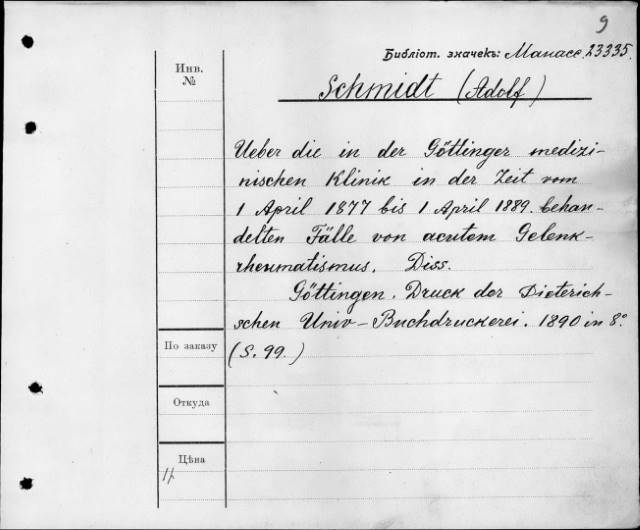 9
Библіот. значекъ: Манасс. 23335.
Инв.
№
Schmidt (Adolf)
Ueber die in der Göttinger medizi-
nischen Klinik in der Zeit vom
1 April 1877 bis 1 April 1889. behan-
delten Fälle von acutem Gelenk-
rheumatismus. Diss.
Göttingen. Druck der Dieterich-
schen Univ-Buchdruckerei. 1890 in 8°
По заказу
(S. 99.)
Откуда
Цѣна